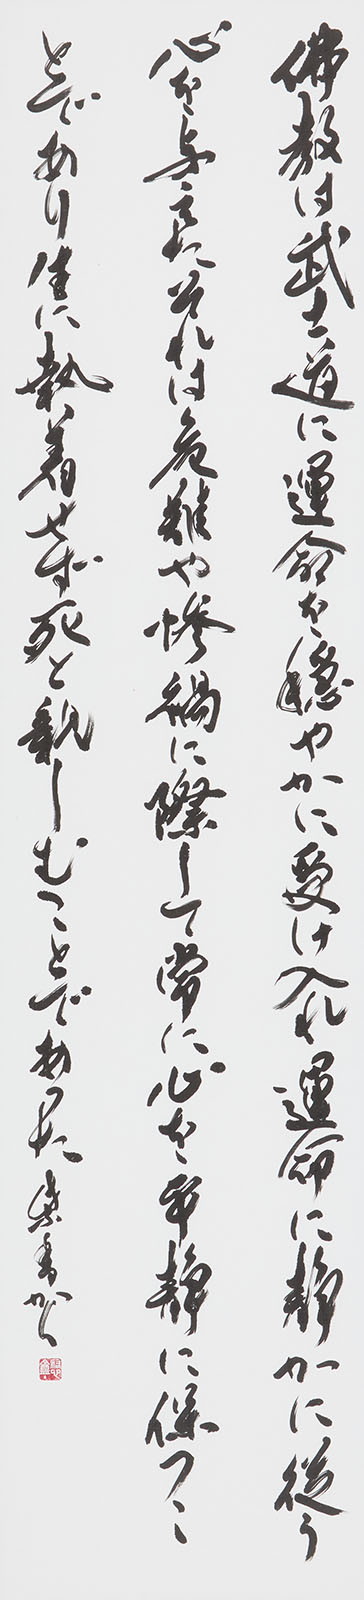 佛教は武士道に運命を穏やかに受け入れ運命に静かに従う
心を与えた それは危難や惨禍に際して常に心を平静に保つこ
とであり生に執着せず死と親しむことであった